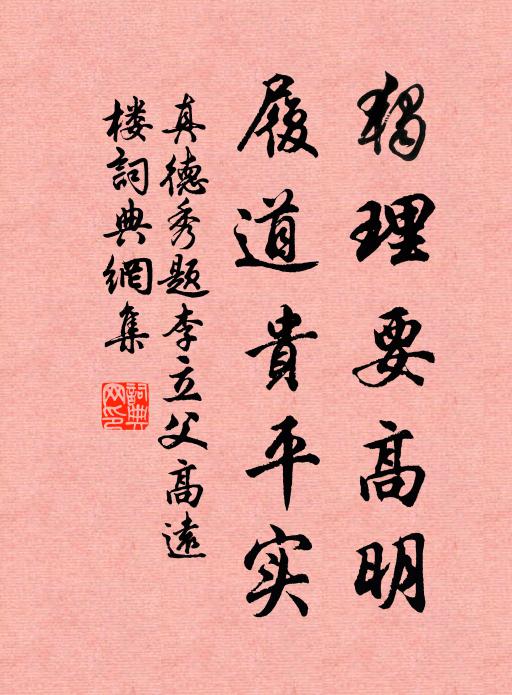 獨理要高明
履道貴平实
真德秀题李立父高遠
楼詞典網集
詞典网印